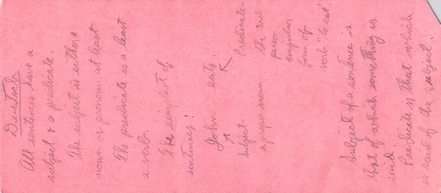 Deutsch
All sentences have a
subject & a predicate.
The subject is either a
noun or pronoun at least
The predicate is a least
a verb.
The simplest of
sentences:
John eats.
Subject
a proper noun
Predicate
the 3rd
person
singular
form of
verb 'to eat'.
Subject of a sentence is
that of which something is
said
Predicate is that which
is said of the subject.